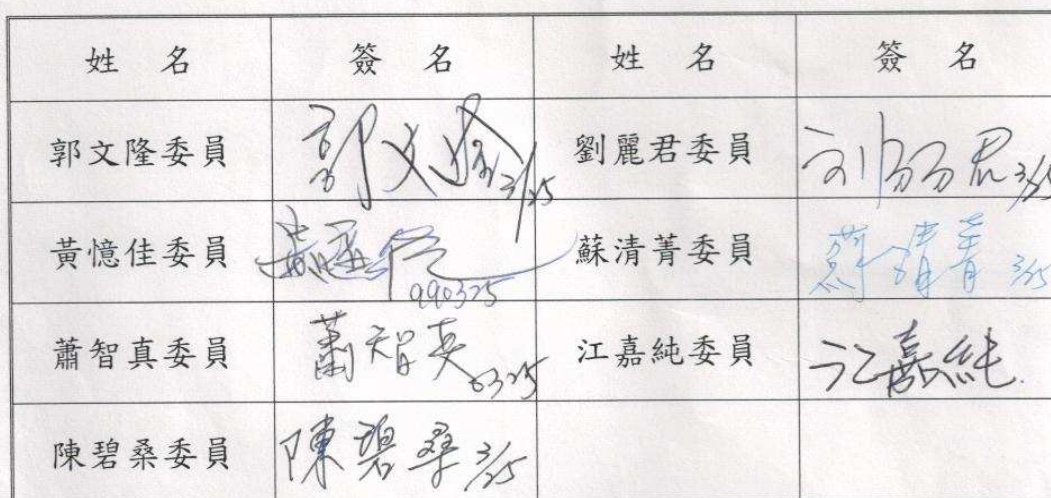 姓 名 簽 名 姓 名 簽 名
郭文隆委員 郭文隆 3/25 劉麗君委員 刘丽君 3/25
黃憶佳委員 黃憶佳 990325 蘇清菁委員 蘇清菁 3/25
蕭智真委員 蕭智真 0325 江嘉純委員 江嘉純
陳碧桑委員 陳碧桑 3/25